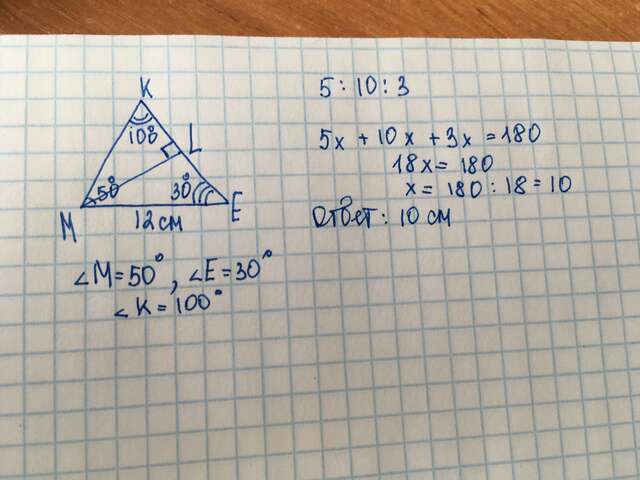 K
100°
L
50°
30°
M
12 см
E
∠M = 50°, ∠E = 30°
∠K = 100°
5 : 10 : 3
5x + 10x + 3x = 180
18x = 180
x = 180 : 18 = 10
Ответ: 10 см